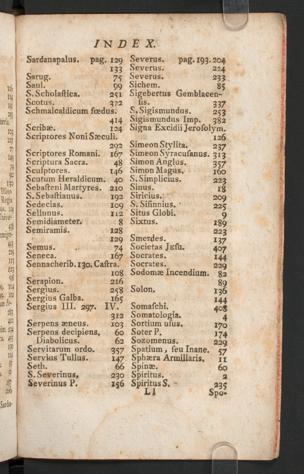 INDEX.
Sardanapalus. pag. 129
133
Sarug. 75
Saul. 99
S. Scholastica. 251
Scotus. 372
Schmalcaldicum fœdus.
414
Scribæ. 124
Scriptores Noni Sæculi.
292
Scriptores Romani. 167
Scriptura Sacra. 48
Sculptores. 146
Scutum Heraldicum. 40
Sebasteni Martyres. 210
S. Sebastianus. 192
Sedecias. 109
Selinus. 112
Semidiameter. 8
Semiramis. 128
129
Semus. 74
Seneca. 167
Sennacherib. 130. Castra.
108
Serapion. 216
Sergius. 258
Sergius Galba. 165
Sergius III. 297. IV.
312
Serpens æneus. 103
Serpens decipiens, 60
Diabolicus. 62
Servitarum ordo. 357
Servius Tullus. 147
Seth. 66
S. Severinus. 230
Severinus P. 156
Severus. pag. 193. 204
Severus. 224
Severus. 233
Sichem. 85
Sigebertus Gemblacen-
sis. 337
S. Sigismundus. 253
Sigismundus Imp. 382
Signa Excidii Jerosolym.
126
Simeon Stylita. 237
Simeon Syracusanus. 313
Simon Anglus. 357
Simon Magus. 160
S. Simplicius. 223
Sinus. 18
Siricius. 209
S. Sisinnius. 225
Situs Globi. 9
Sixtus. 189
223
Smerdes. 137
Societas Jesu. 407
Socrates. 144
Socrates. 229
Sodomæ Incendium. 82
89
Solon. 136
144
Somaschi. 408
Somatologia. 4
Sortium usus. 170
Soter P. 174
Sozomenus. 229
Spatium, seu Inane. 57
Sphæra Armillaris. 11
Spinæ. 60
Spiritus. 2
Spiritus S. 235
Ll
Spo-